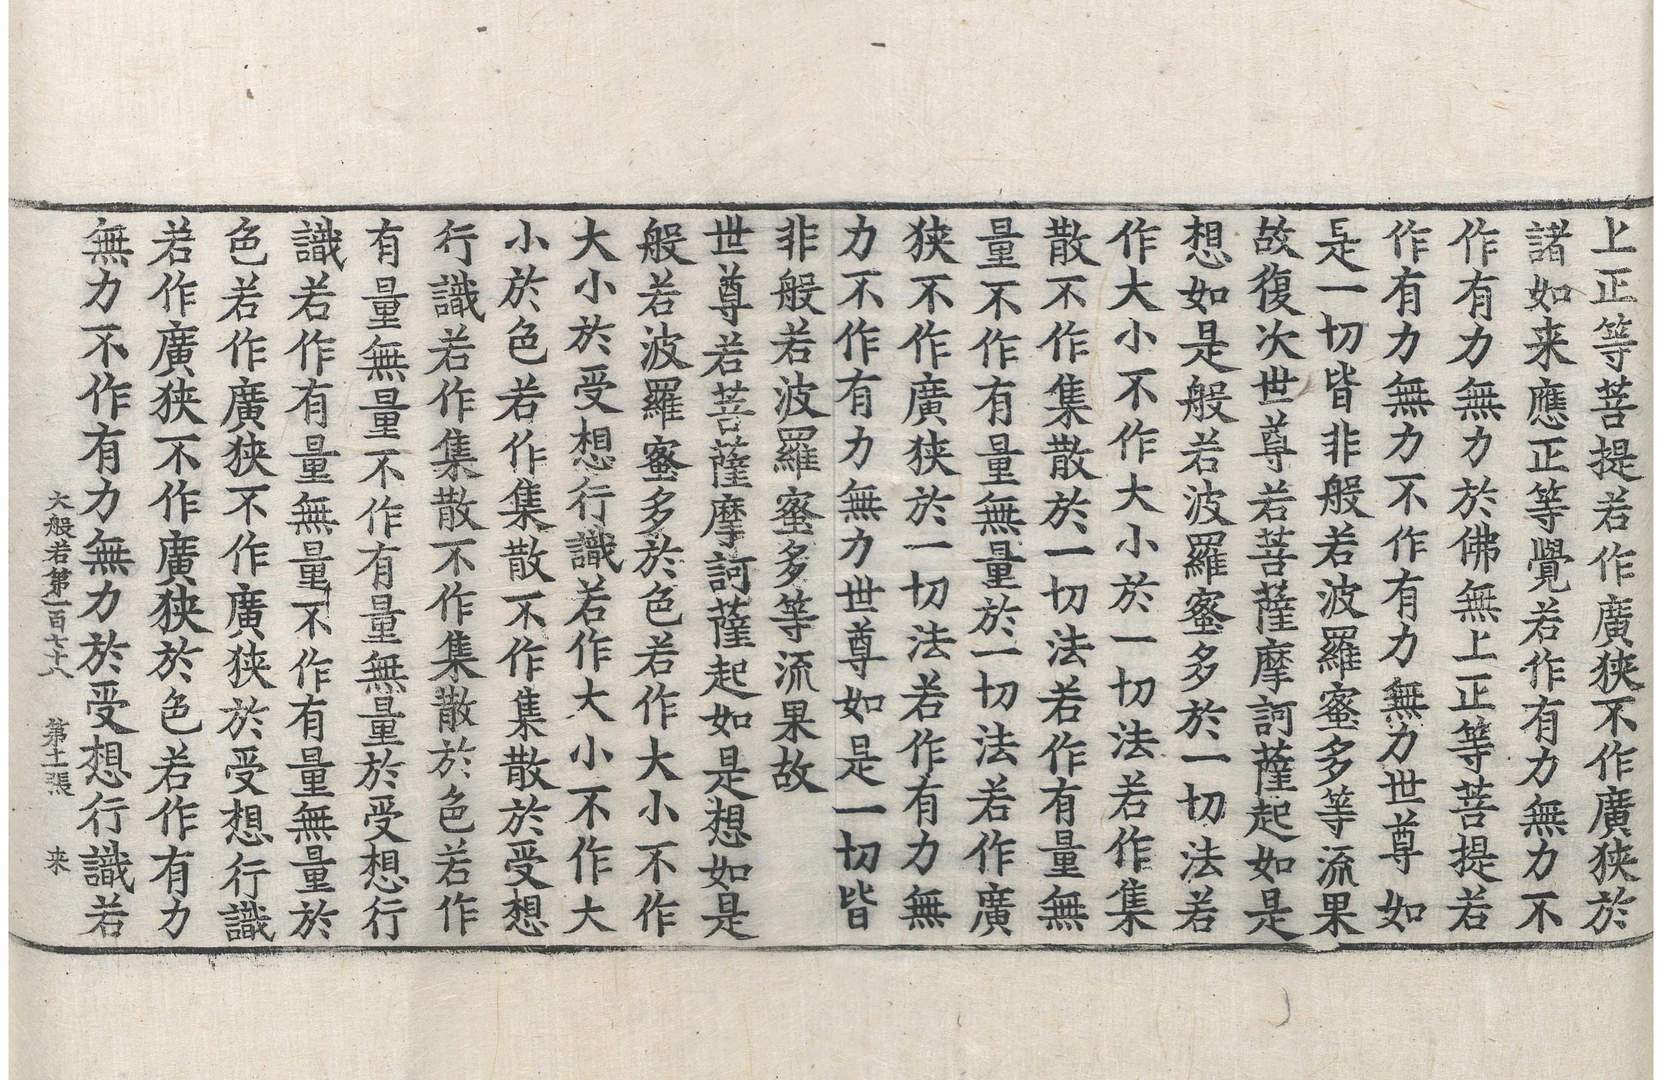 上正等菩提若作廣狹不作廣狹於
諸如来應正等覺若作有力無力不
作有力無力於佛無上正等菩提若
作有力無力不作有力無力世尊如
是一切皆非般若波羅蜜多等流果
故復次世尊若菩薩摩訶薩起如是
想如是般若波羅蜜多於一切法若
作大小不作大小於一切法若作集
散不作集散於一切法若作有量無
量不作有量無量於一切法若作廣
狹不作廣狹於一切法若作有力無
力不作有力無力世尊如是一切皆
非般若波羅蜜多等流果故
世尊若菩薩摩訶薩起如是想如是
般若波羅蜜多於色若作大小不作
大小於受想行識若作大小不作大
小於色若作集散不作集散於受想
行識若作集散不作集散於色若作
有量無量不作有量無量於受想行
識若作有量無量不作有量無量於
色若作廣狹不作廣狹於受想行識
若作廣狹不作廣狹於色若作有力
無力不作有力無力於受想行識若
大般若第一百七十八 第十二張 来